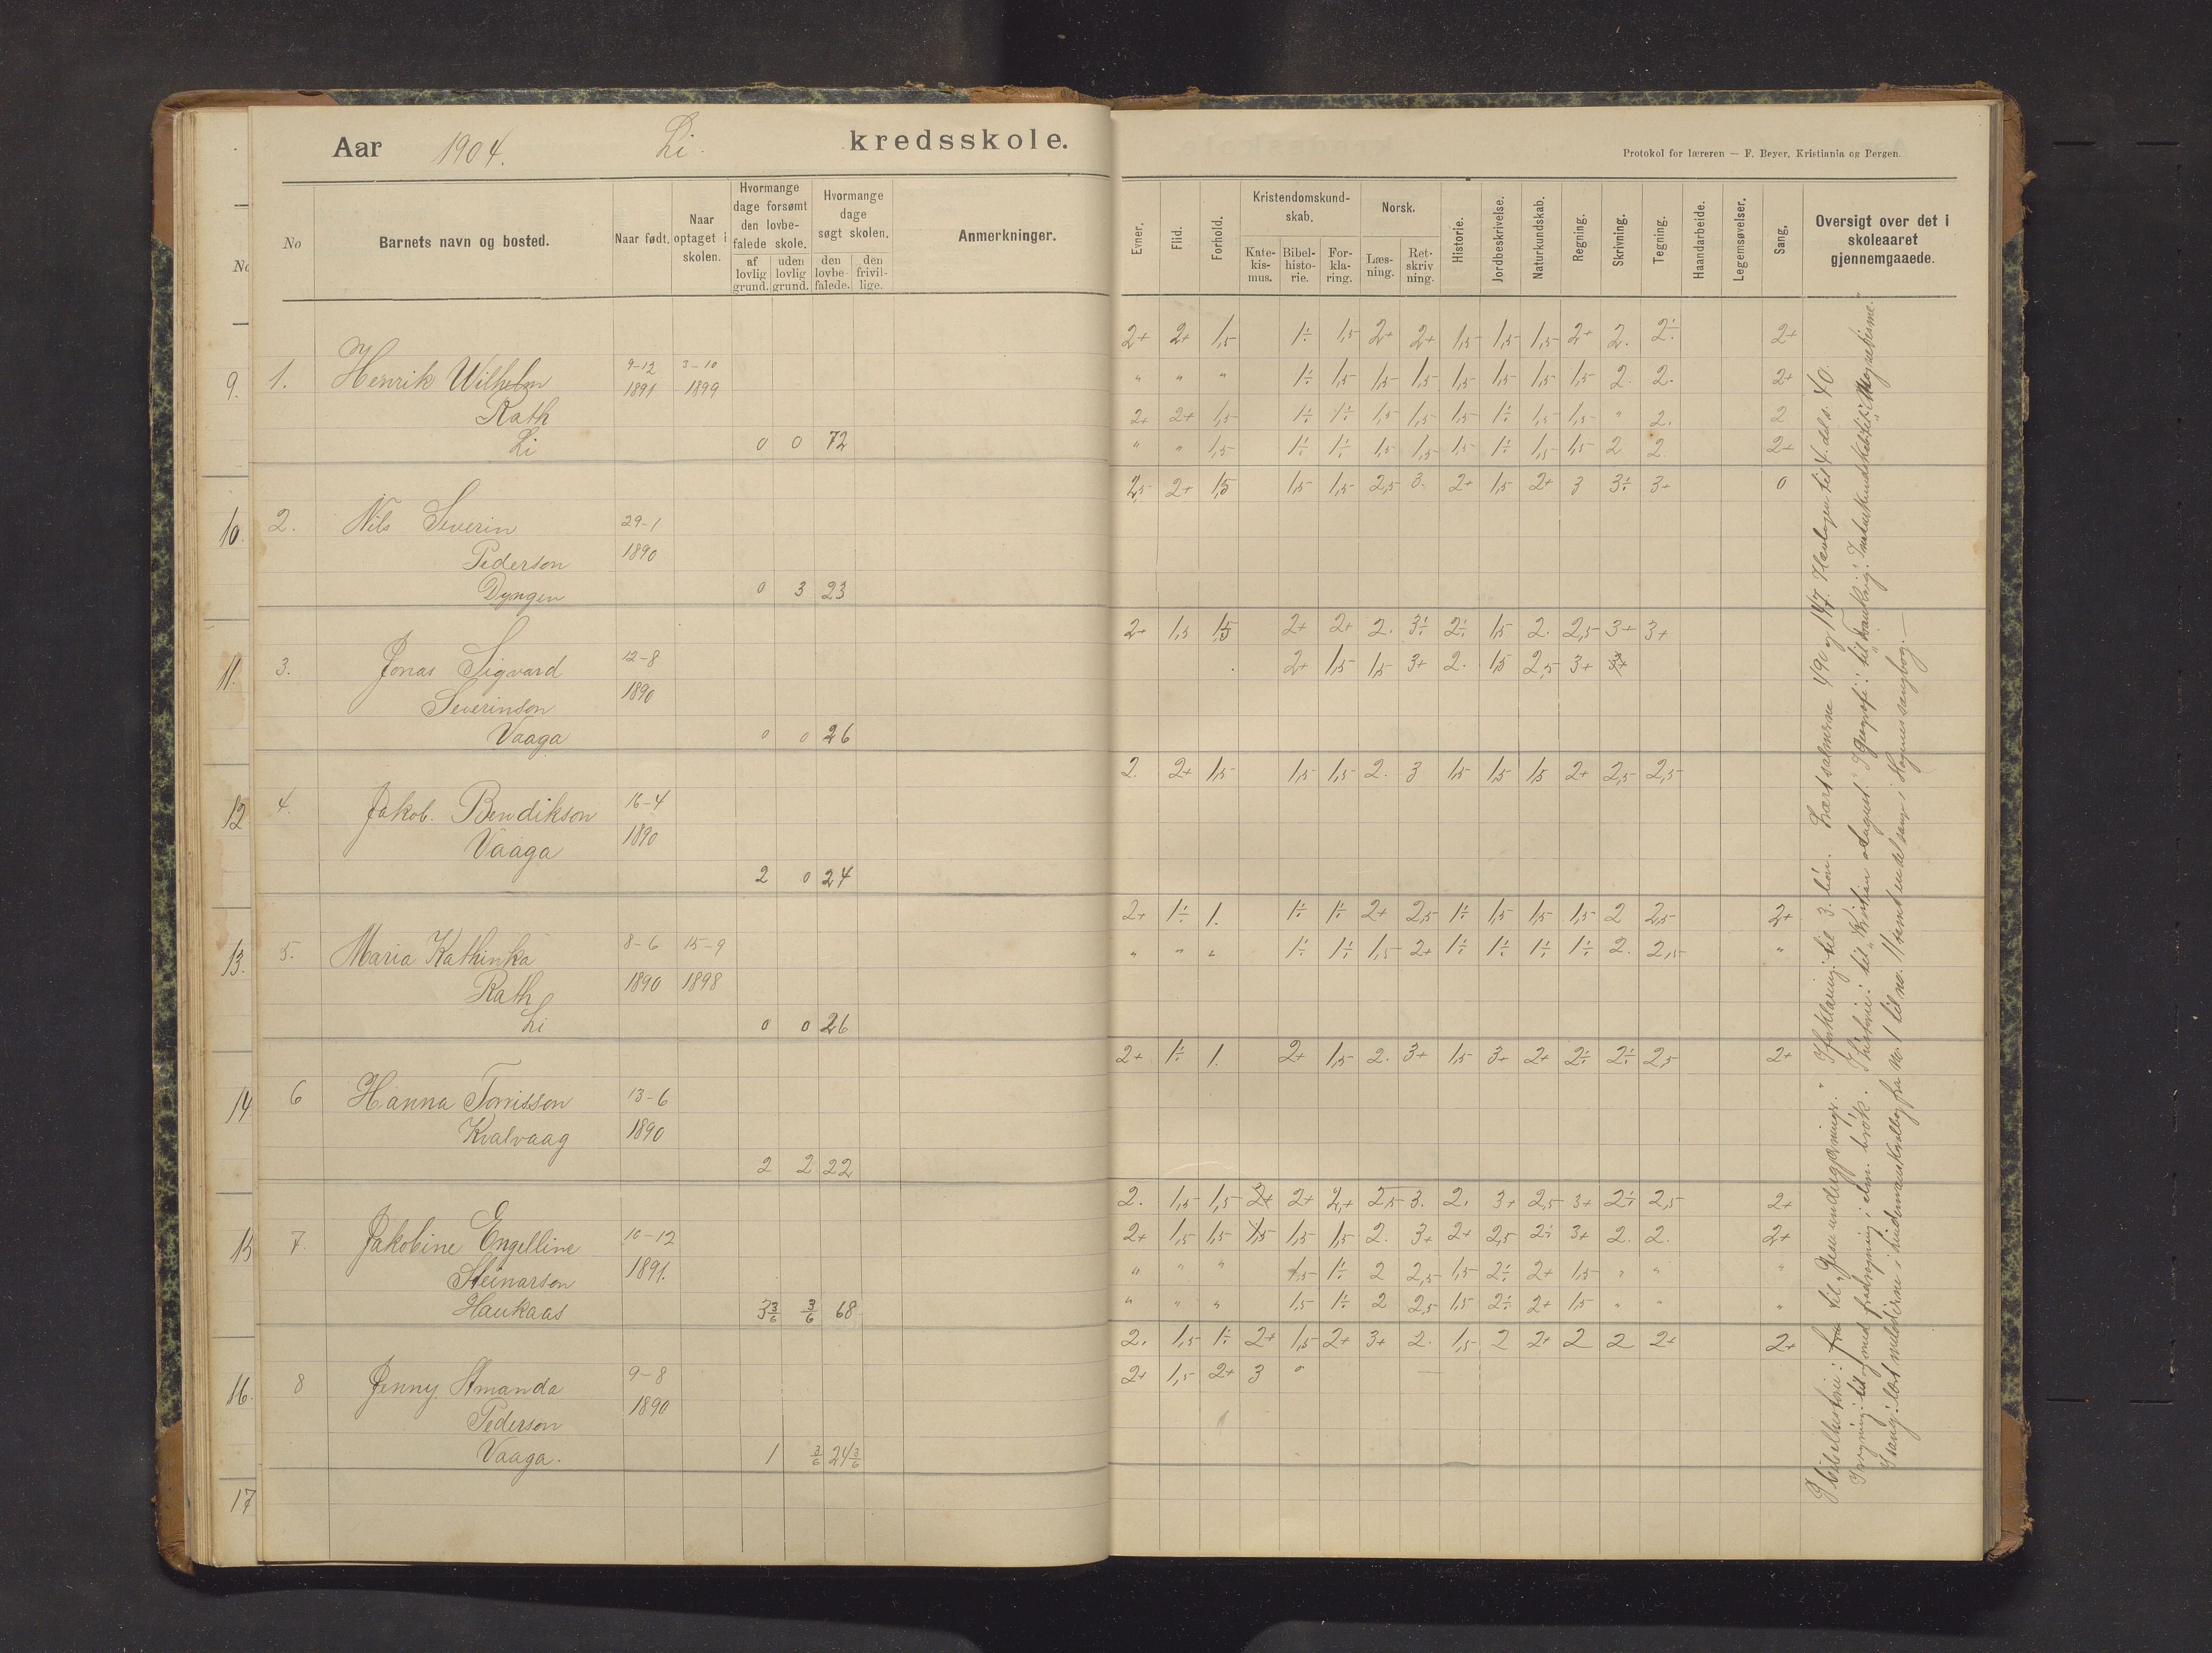 Aar 1904. Li. kredsskole.
Protokol for læreren — F. Beyer, Kristiania og Bergen.
No
Barnets navn og bosted.
Naar født.
Naar optaget i skolen.
Hvormange dage forsømt den lovbefalede skole.
af lovlig grund.
uden lovlig grund.
Hvormange dage søgt skolen.
den lovbefalede.
den frivillige.
Anmerkninger.
Evner.
Flid.
Forhold.
Kristendomskundskab.
Katekismus.
Bibelhistorie.
Forklaring.
Norsk.
Læsning.
Retskrivning.
Historie.
Jordbeskrivelse.
Naturkundskab.
Regning.
Skrivning.
Tegning.
Haandarbeide.
Legemsøvelser.
Sang.
Oversigt over det i skoleaaret gjennemgaaede.
No
9.
10.
11.
12
13.
14.
15
16.
17
2+ 2+ 1,5 1÷ 1,5 2+ 2+ 1,5 1,5 1,5 2+ 2. 2÷ 2+
1. Henrik Wilhelm 9-12 3-10
1891 1899
" " " 1÷ 1,5 1,5 1,5 1,5 1,5 1,5 1,5 2. 2. 2+
Rath
2+ 2+ 1,5 1÷ 1÷ 1,5 1,5 1,5 1÷ 1,5 1,5 " 2. 2
Li 0 0 72
" " 1,5 1÷ 1÷ 1,5 1,5 1,5 1÷ 1,5 1,5 2 2. 2+
2,5 2+ 1,5 1,5 1,5 2,5 3. 2+ 1,5 2+ 3 3÷ 3+ 0
2. Nils Severin 29-1
Pederson 1890
Dyngen 0 3 23
2+ 1,5 1,5 2+ 2+ 2. 3÷ 2÷ 1,5 2. 2,5 3+ 3+
3. Jonas Sigvard 12-8
2+ 1,5 1,5 3+ 2. 1,5 2,5 3+
Severinson 1890
Vaaga 0 0 26
2. 2+ 1,5 1,5 1,5 2. 3 1,5 1,5 1,5 2+ 2,5 2,5
4. Jakob. Bendikson 16-4
Vaaga 1890
2 0 24
2+ 1÷ 1. 1÷ 1÷ 2+ 2,5 1÷ 1,5 1,5 1,5 2 2,5 2+
5. Maria Kathinka 8-6 15-9
" " " 1÷ 1÷ 1,5 2+ 1÷ 1÷ 1÷ 1÷ 2. 2,5 "
Rath 1890 1898
Li 0 0 26
2+ 1÷ 1. 2+ 1,5 2. 3+ 1,5 3+ 2+ 2÷ 2÷ 2,5 2+
6 Hanna Tonisson 13-6
Kvalvaag 1890
2 2 22
2. 1,5 1,5 2+ 2+ 2,+ 2,5 3. 2. 3+ 2,5 3+ 2÷ 2,5 2+
7. Jakobine Engelline 10-12
2+ 1,5 1,5 1,5 1,5 1,5 2. 3+ 2+ 2,5 2÷ 3+ 2. 2. 2+
Steinarson 1891.
" " " 1,5 1÷ 2 2,5 1,5 2÷ 2+ 1,5 " " "
Haukaas 3 3/6 3/6 68
" " " 1,5 1÷ 2 2,5 1,5 2÷ 2+ 1,5 " " "
2. 1,5 1÷ 2+ 1,5 2+ 3+ 2. 1,5 2 2+ 2 2 2+ 2+
8 Jenny Amanda 9-8
2+ 1,5 2+ 3 "
Pederson 1890
Vaaga. 1 3/6 24 3/6
I bibelhistorie: til "Jesu undergjerninger." I forklaring: til 3. bøn. Lært salmerne 491 og 147.
I regning: til og med fradragning i alm. brøk. I historie: til "Kristian" I geografi: til "Frankrig". I naturkundskab: til "Magnetisme."
I sang: lært melodierne i Lindemans fra no. 1 til no. 11 samt en del sange i Hognes sangbog. —